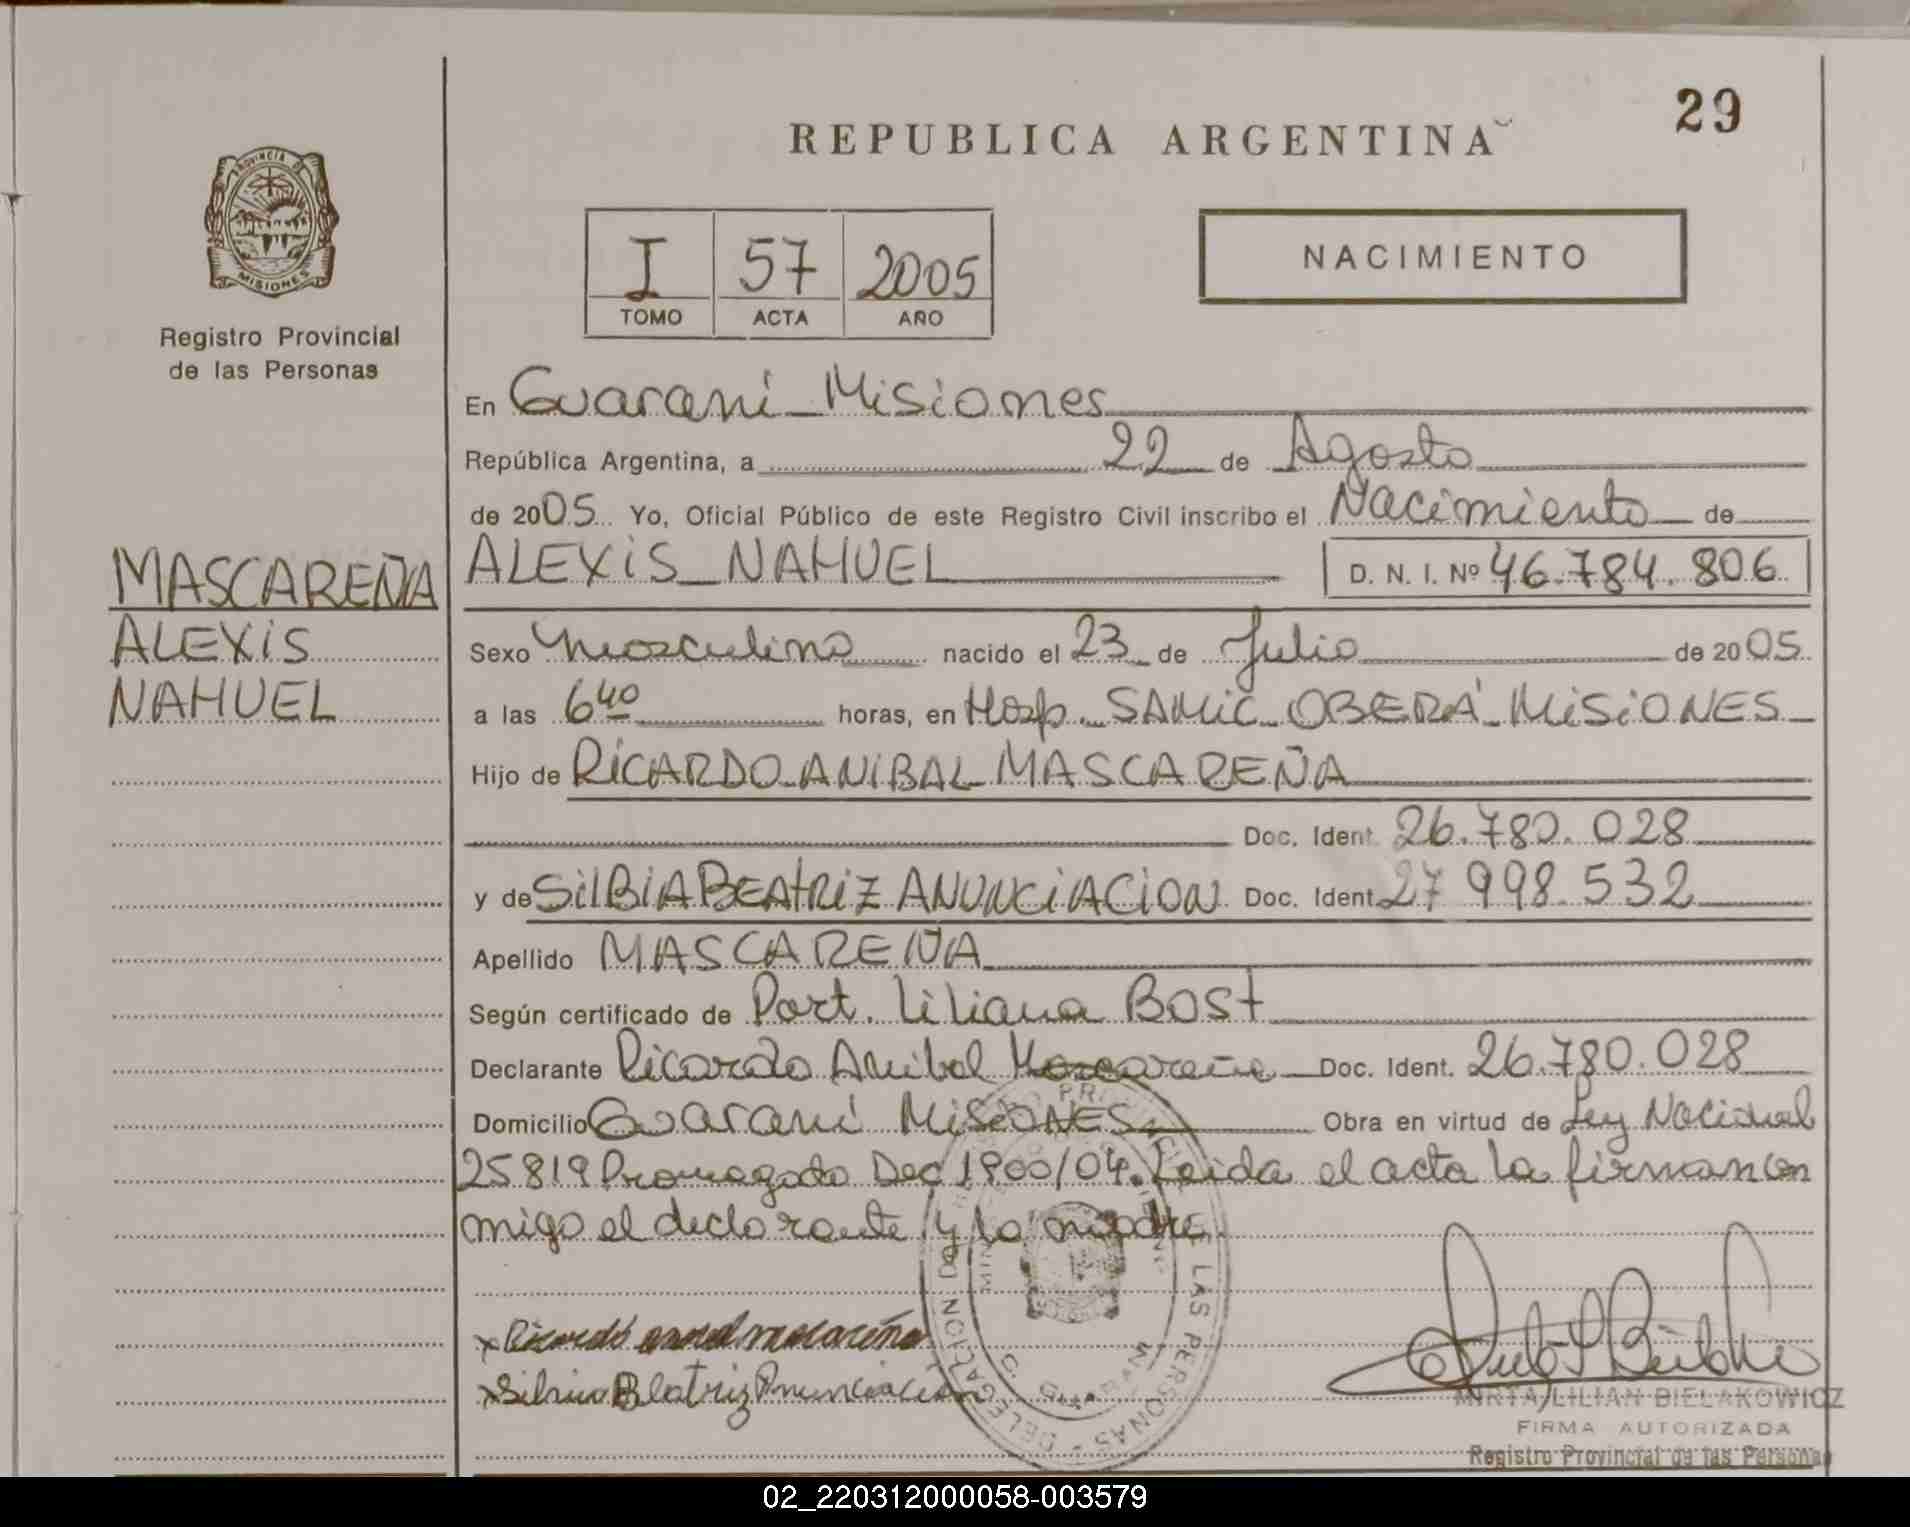 29
REPUBLICA ARGENTINA
PROVINCIA DE
MISIONES
Registro Provincial
de las Personas
I 57 2005
TOMO ACTA AÑO
NACIMIENTO
En Guaraní - Misiones
República Argentina, a 22 de Agosto
de 2005 Yo, Oficial Público de este Registro Civil inscribo el Nacimiento de
MASCAREÑA
ALEXIS
NAHUEL
ALEXIS NAHUEL D. N. I. Nº 46.784.806
Sexo Masculino nacido el 23 de Julio de 2005
a las 6 40 horas, en Hosp. SAMIC OBERÁ - MISIONES
Hijo de RICARDO ANIBAL MASCAREÑA
Doc. Ident. 26.780.028
y de SILBIA BEATRIZ ANUNCIACION Doc. Ident. 27 998.532
Apellido MASCAREÑA
Según certificado de Part. Liliana BOST
Declarante Ricardo Anibal Mascareña Doc. Ident. 26.780.028
Domicilio Guaraní MISIONES Obra en virtud de Ley Nacional
25819 Dec 1900/04. Leida el acta la firman con
migo el declarante y la madre
LAS PERSONAS - DELEGACION
Beatriz Anunciacion
MIRTA LILIAN BIELAKOWICZ
FIRMA AUTORIZADA
Registro Provincial de las Personas
02_220312000058-003579